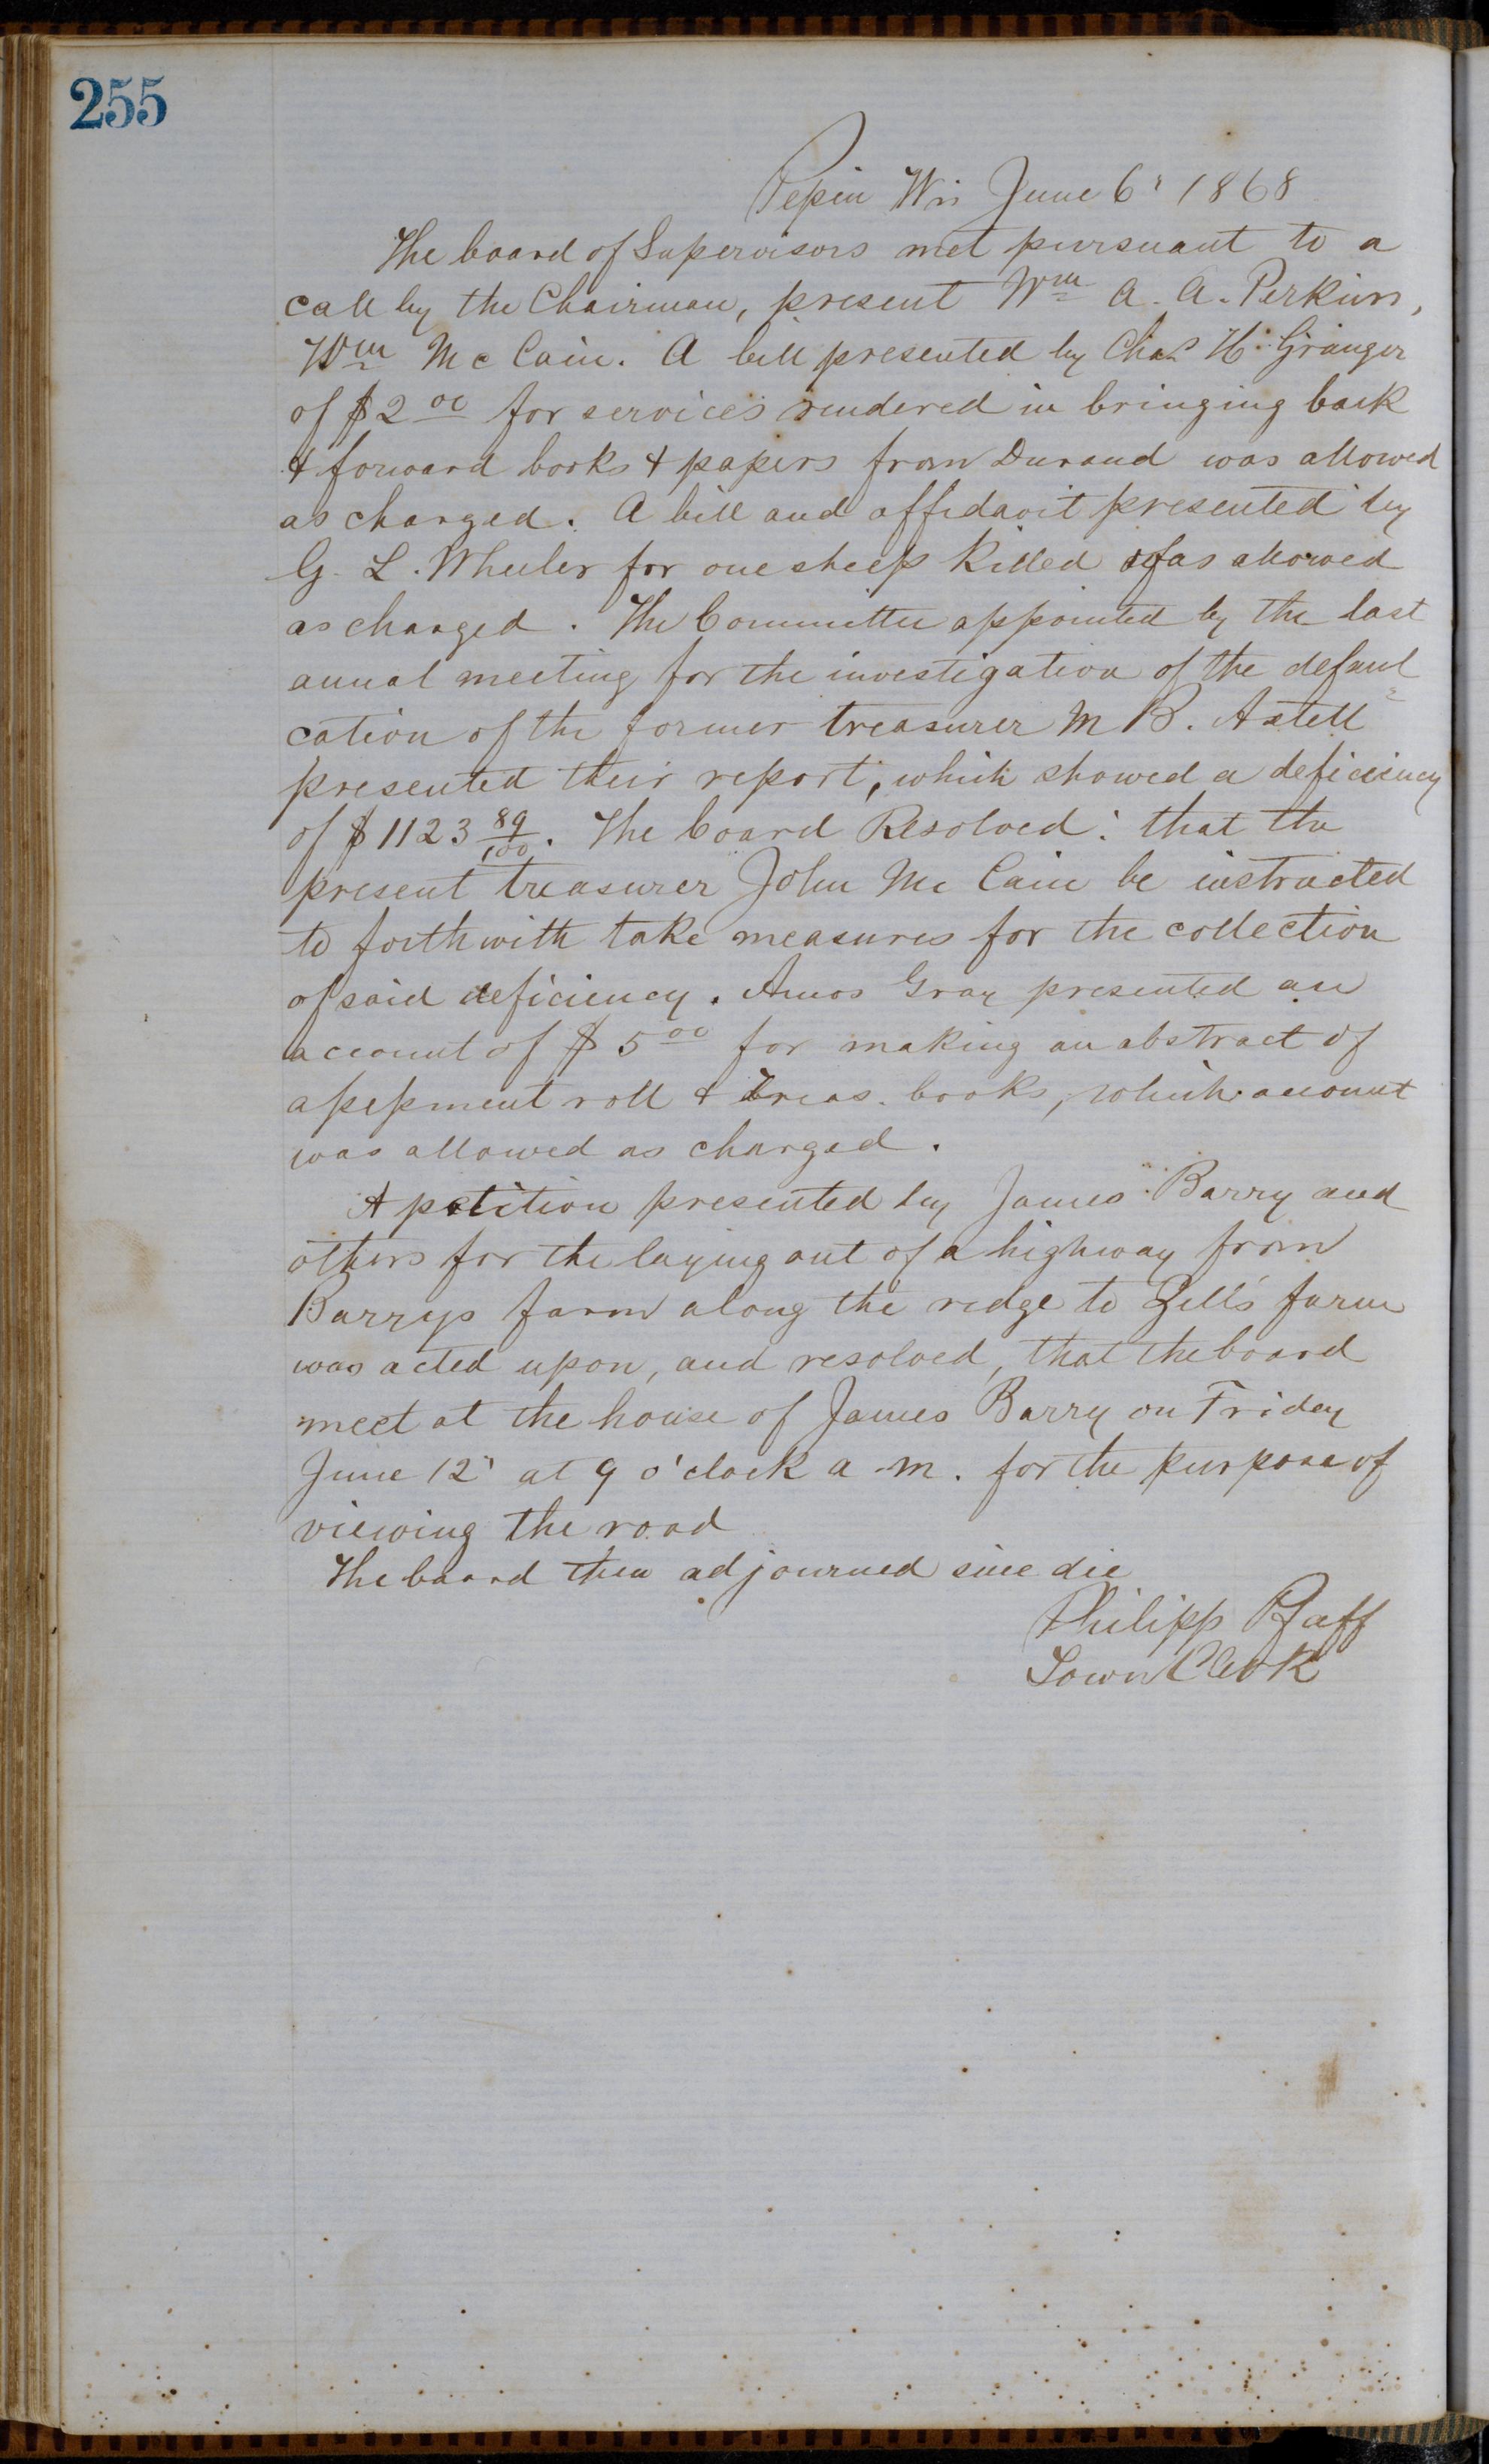 255
Pepin Wis June 6' 1868
The board of Supervisors met pursuant to a
call by the Chairman, present Wm A. A. Perkins,
Wm Mc Cain. A bill presented by Chas H. Granger
of $2 00 for services rendered in bringing back
& forward books & papers from Durand was allowed
as charged. A bill and affidavit presented by
G. L. Wheeler for one sheep killed was allowed
as charged. The Committee appointed by the last
annual meeting for the investigation of the defaul=
cation of the former treasurer M B. Axtell
presented their report, which showed a deficiency
of $1123 89/100. The board Resolved: that the
present treasurer John Mc Cain be instructed
to forthwith take measures for the collection
of said deficiency. Amos Gray presented an
account of $5 00 for making an abstract of
assessment roll & Treas. books, which account
was allowed as charged.
A petition presented by James Barry and
others for the laying out of a highway from
Barrys farm along the ridge to Zell's farm
was acted upon, and resolved, that the board
meet at the house of James Barry on Friday
June 12' at 9 o'clock a.m. for the purpose of
viewing the road
The board then adjourned sine die
Philipp Pfaff
Town Clerk